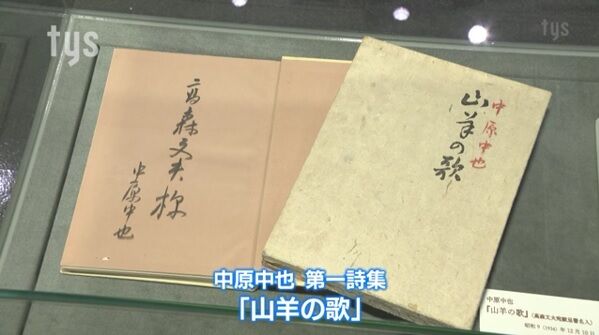 tys
tys
高森文夫様
中原中也
中原中也
山羊の歌
中原中也
『山羊の歌』（高森文夫宛献呈署名入）
昭和9（1934）年12月10日
中原中也 第一詩集
「山羊の歌」